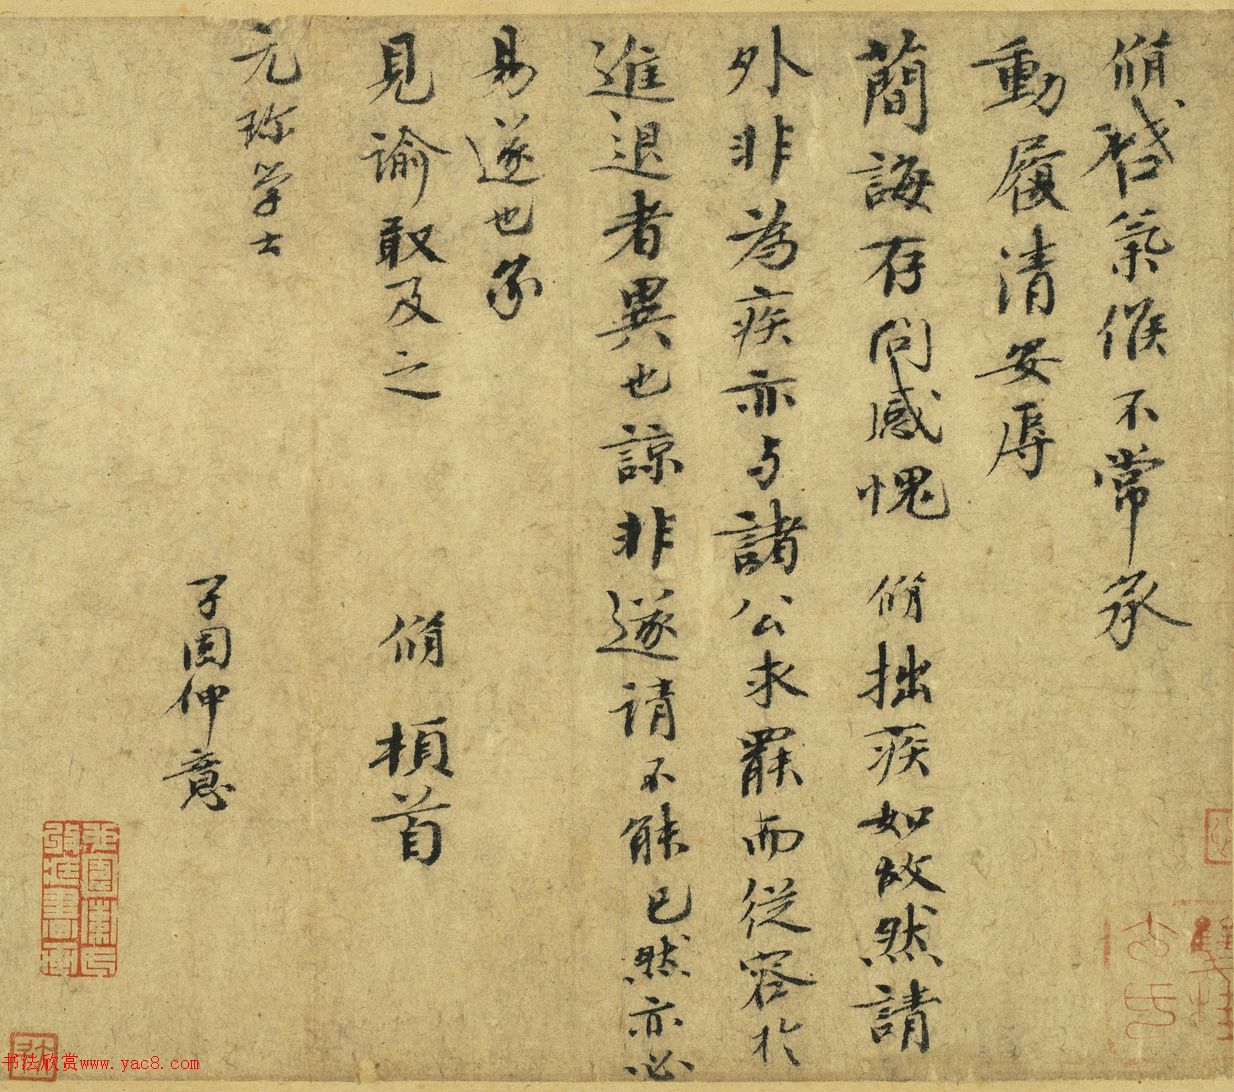 脩啓氣候不常承
動履清安辱
簡誨存问感愧脩拙疾如故然請
外非為疾亦与諸公求罷而從容於
進退者異也諒非遂請不能已然亦必
易遂也承
見諭敢及之
脩頓首
元珍学士
子固仲意
书法欣赏www.yac8.com